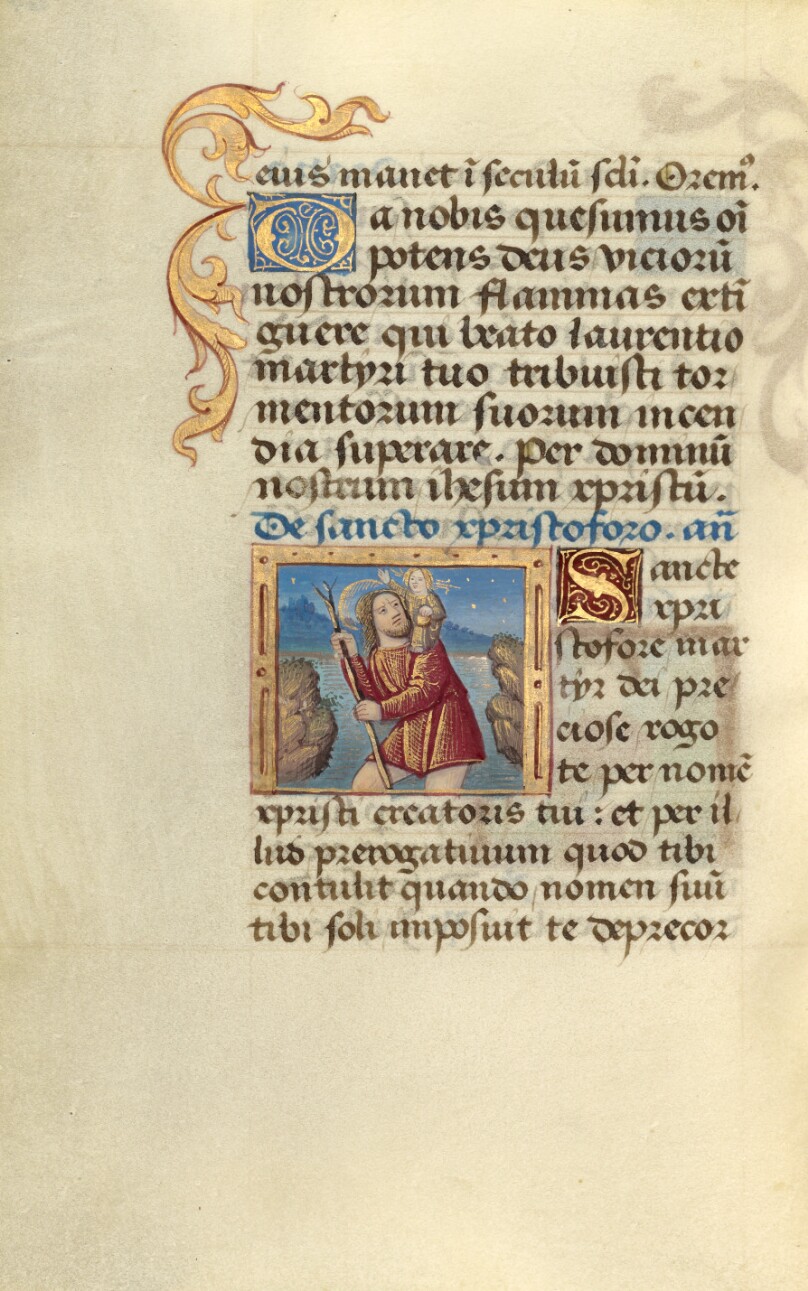 eius manet ĩ seculũ sc̃li. Orem⁹.
Da nobis quesumus oĩ
potens deus viciorũ
nostrorum flammas extĩ
guere qui beato laurentio
martyri tuo tribuisti tor
mentorum suorum incen
dia superare. Per dominũ
nostrum ihesum xpristũ.
De sancto xpristoforo. añ
Sancte
xpri
stofore mar
tyr dei pre
ciose rogo
te per nomẽ
xpristi creatoris tui : et per il
lud prerogatiuum quod tibi
contulit quando nomen suũ
tibi soli imposuit te deprecor